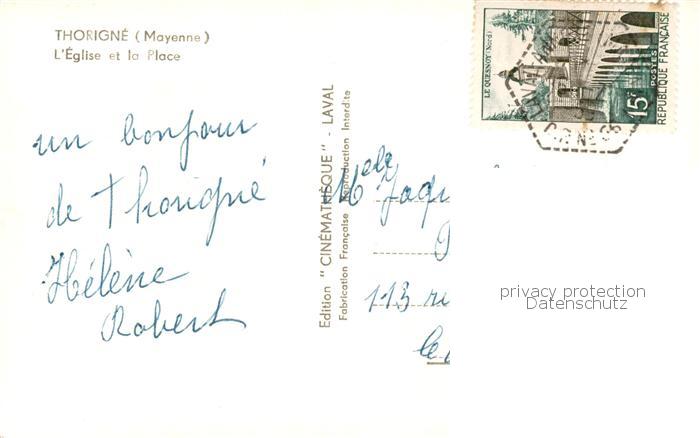 THORIGNÉ (Mayenne)
L'Église et la Place
un bonjour
de Thorigné
Hélène
Robert
Edition "CINÉMATHÈQUE" - LAVAL
Fabrication Française Reproduction Interdite
LE QUESNOY (Nord)
15F
POSTES
REPUBLIQUE FRANÇAISE
Melle Jaqu
113 ru
privacy protection
Datenschutz